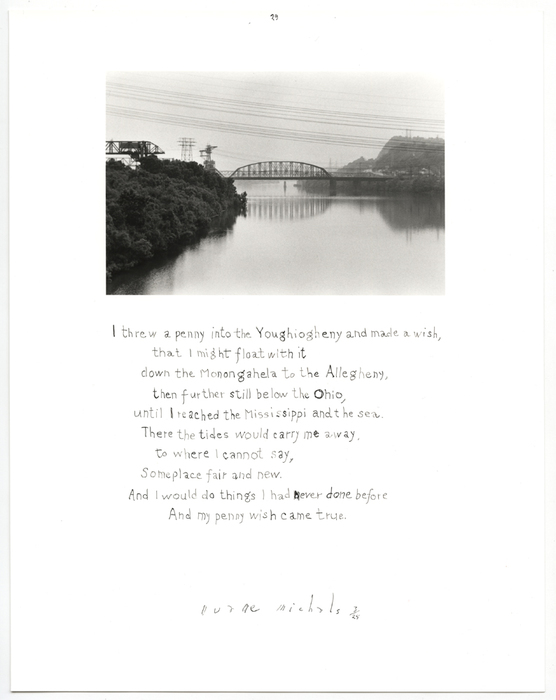 29
I threw a penny into the Youghiogheny and made a wish,
that I might float with it
down the Monongahela to the Allegheny,
then further still below the Ohio,
until I reached the Mississippi and the sea.
There the tides would carry me away,
to where I cannot say,
Someplace fair and new.
And I would do things I had never done before
And my penny wish came true.
Duane Michals 7/25